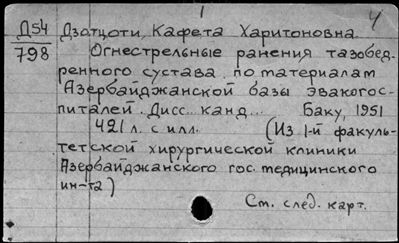 1
4
Д54 Дзотцоти, Кафета Харитоновна
798 Огнестрельные ранения тазобед-
ренного сустава по материалам
Азербайджанской базы эвакогос-
питалей. Дисс. канд... Баку, 1951
421 л. с илл. (Из I-й факуль-
тетской хирургической клиники
Азербайджанского гос. медицинского
ин-та)
См. след. карт.